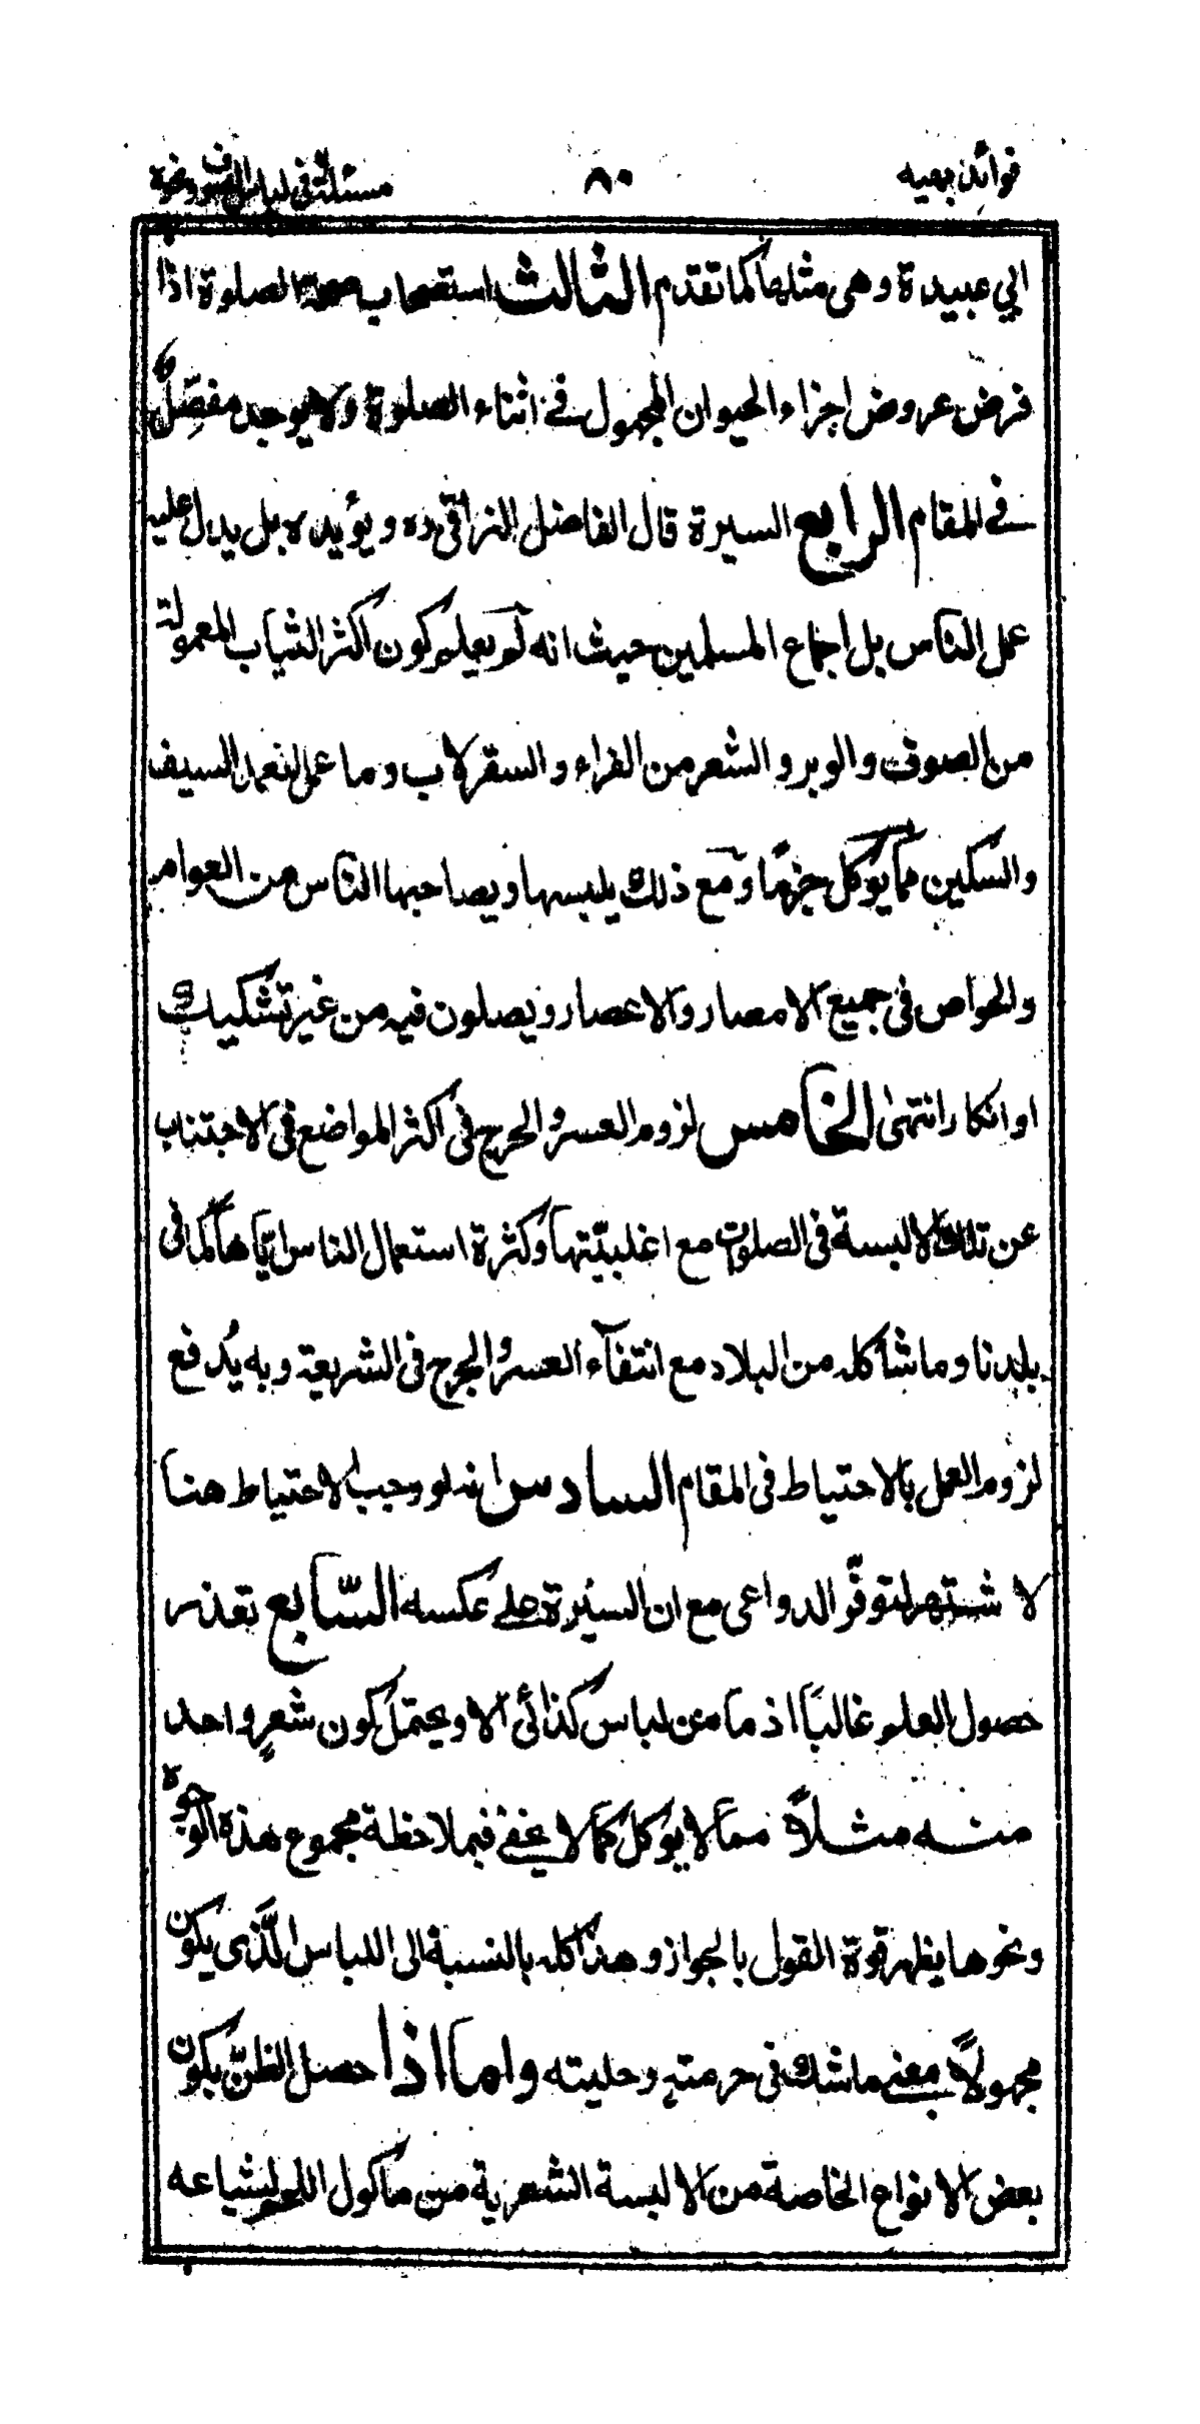 فوائد بهيه
٨٠
مسئلة في لباس الصوف ونحوه
ابي عبيدة وهى مثلها كما تقدم الثالث استصحاب صحة الصلوة اذا
فرض عروض اجزاء الحيوان المجهول في اثناء الصلوة ولا يوجد مفصّل
في المقام الرابع السيرة قال الفاضل النراقى ره ويؤيده بل يدل عليه
عمل الناس بل اجماع المسلمين حيث انه لم يعلم كون اكثر الثياب المعمولة
من الصوف والوبر والشعر من الفراء والسقرلاب وما عمل لغمد السيف
والسكين مما يؤكل جزمًا ومع ذلك يلبسها ويصاحبها الناس من العوام
والخواص فى جميع الامصار والاعصار ويصلون فيه من غير تشكيك
او انكار انتهىٰ الخامس لزوم العسر والحرج فى اكثر المواضع فى الاجتناب
عن تلك الالبسة فى الصلوت مع اغلبيّتها وكثرة استعمال الناس ايّاها كما فى
بلدنا وما شاكله من البلاد مع انتفآء العسر والحرج فى الشريعة وبه يُدفع
لزوم العمل بالاحتياط فى المقام السادس انه لو وجب الاحتياط هنا
لا شتهر لتوفّر الدواعى مع ان السيرة على عكسه السّابع تعذر
حصول العلم غالبًا اذ ما من لباس كذائى الا ويحتمل كون شعرٍ واحد
منه مثلاً مما لا يؤكل كما لا يخفى فبملاحظة مجموع هذه الوجوه
ونحوها يظهر قوة القول بالجواز وهذا كله بالنسبة الى اللباس الّذى يكون
مجهولاً بمعنى ما شك فى حرمته وحليته واما اذا حصل الظنّ بكون
بعض الانواع الخاصة من الالبسة الشعرية من ماكول اللحم لشياعه